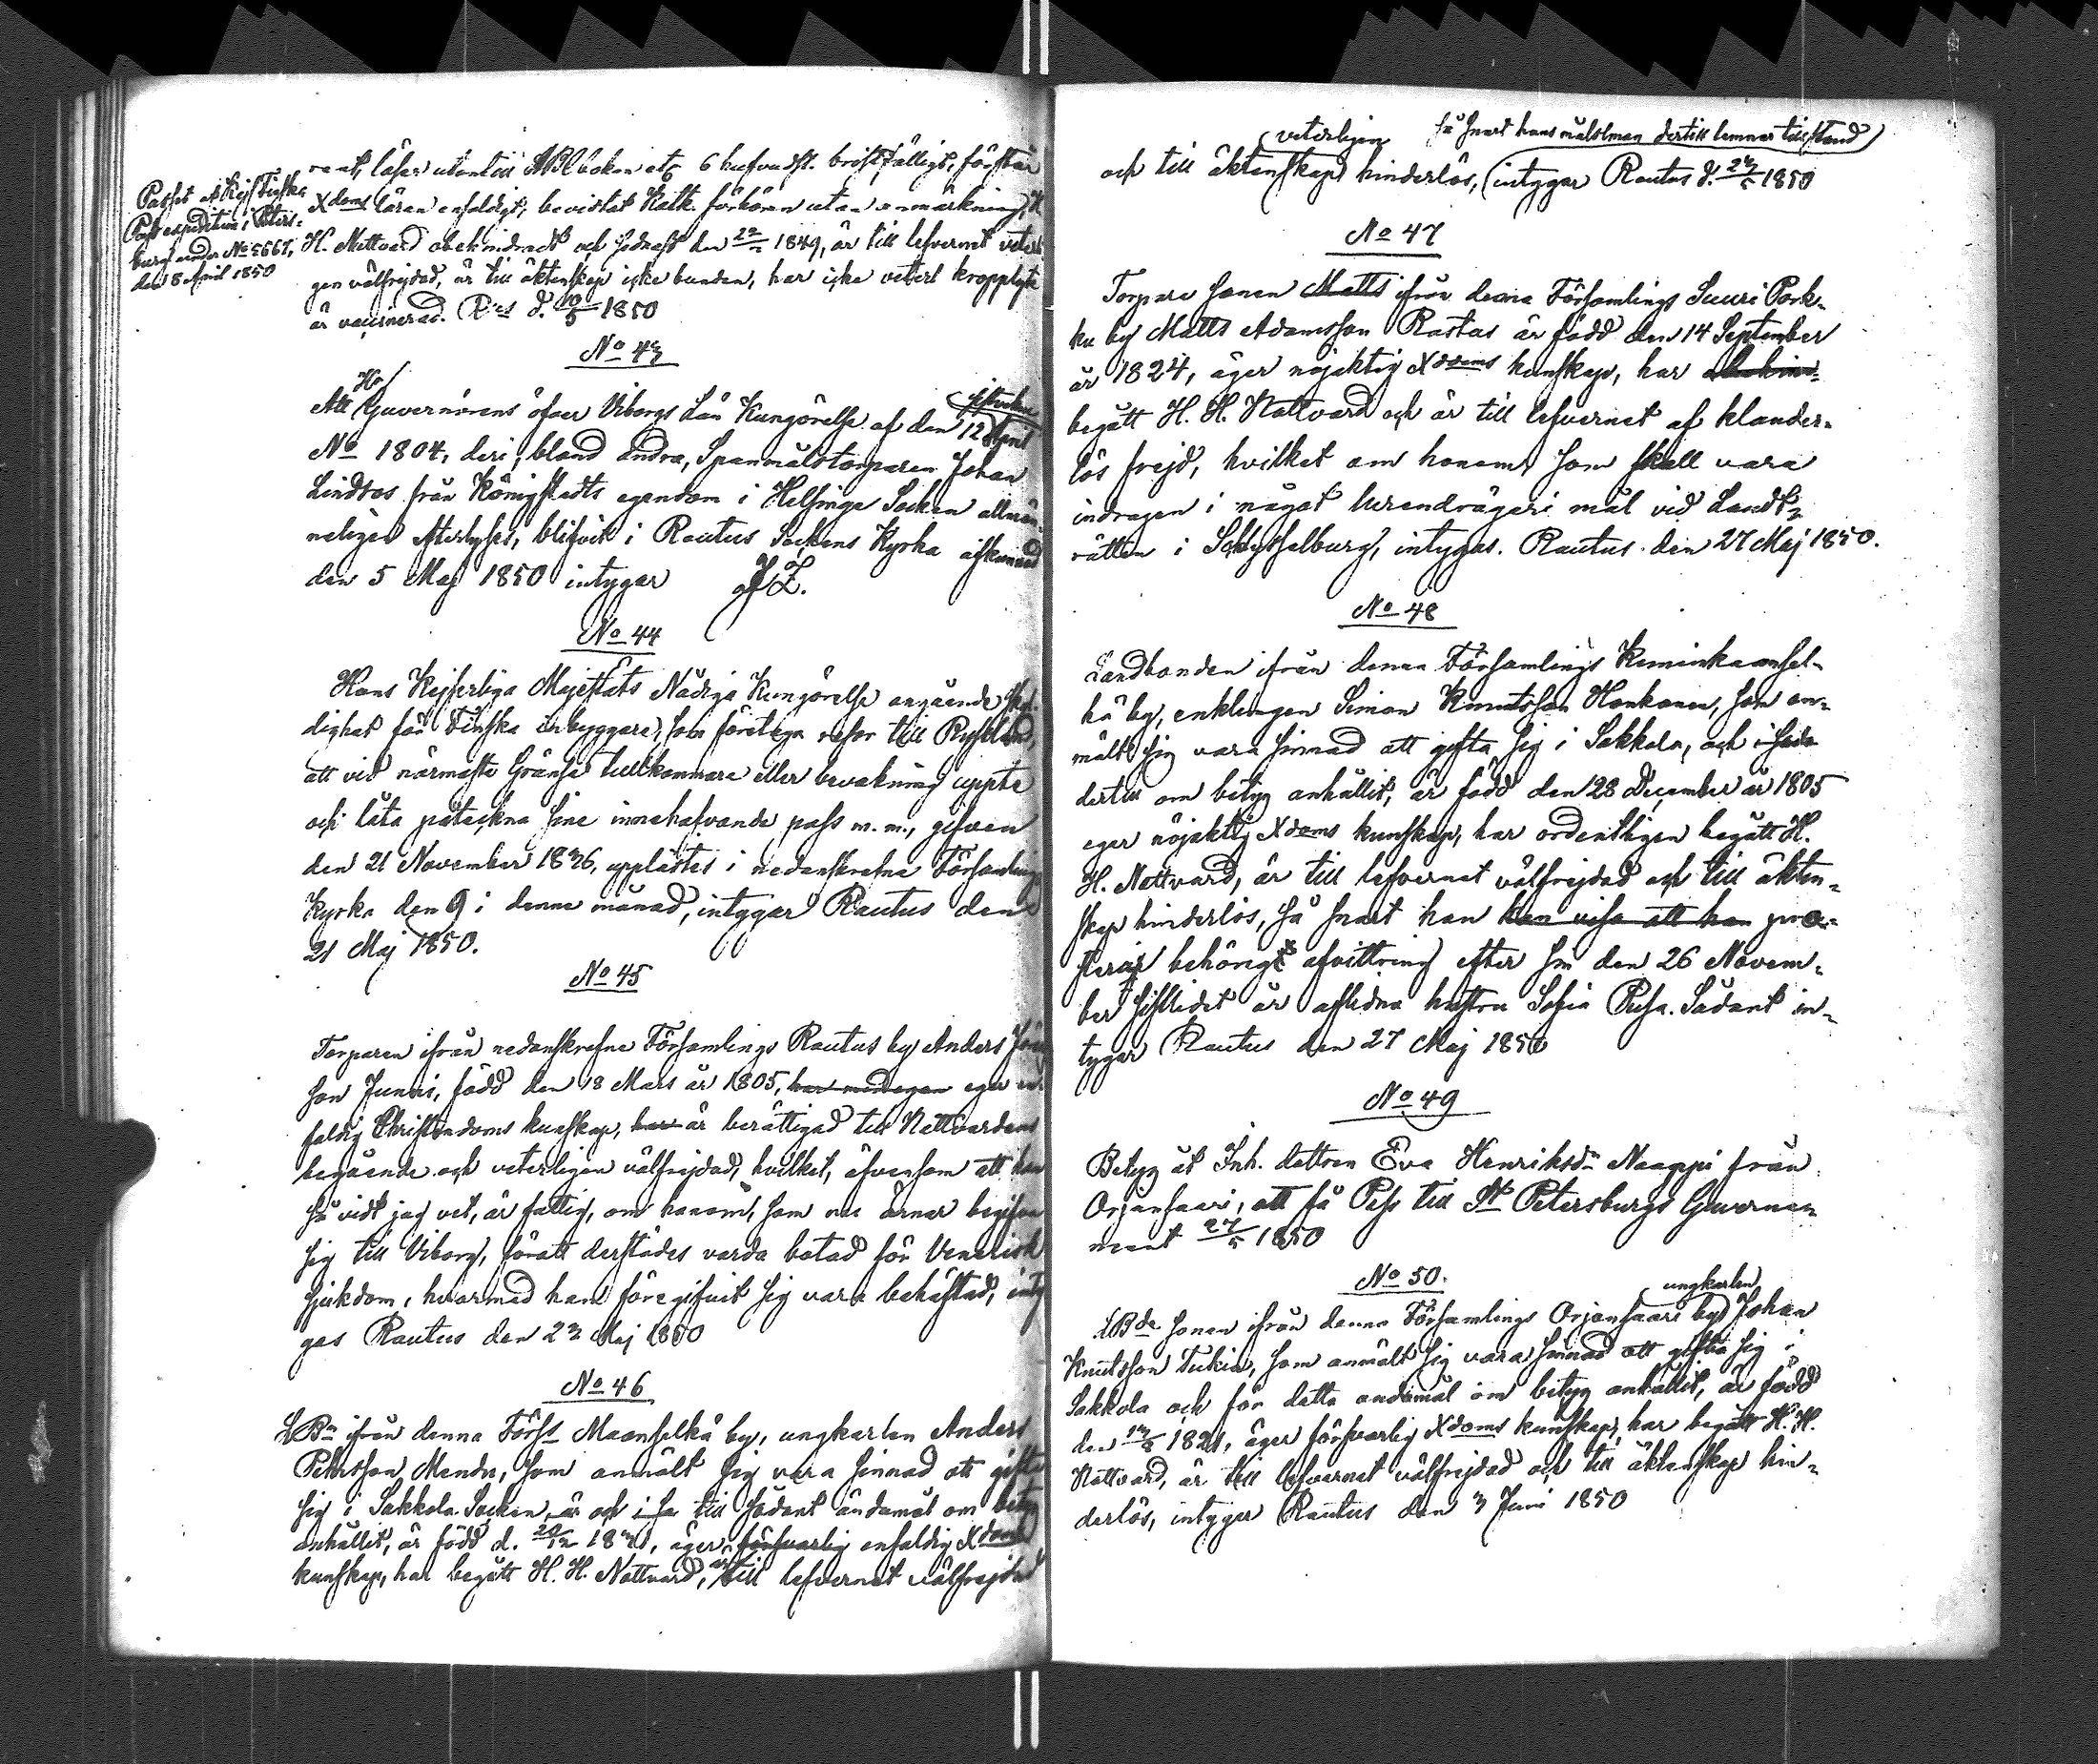 Passet af Kejs Finska
Passexpedition i Peters-
burg under No 5667,
den 18 April 1850
rent, läser utantill ABC boken etc 6 hufvudst. bristfälligt, förstår
Xdoms läran enfaldigt, bevistat Katk. förhören utan anmärkning, H
H. Nattvard obehindradt och sednast den 1849, är till lefvernet veterli
gen välfrejdad, är till äktenskap icke bunden, har icke veterl kroppslyte
är vaccinerad. Rus d. 10/5 1850
No 43
Att Hr Guvernörens öfver Viborgs Län Kungörelse af den 12 April sistvikne
No 1804, deri, bland andra, Spanmålstorparen Johan
Lindroos från Königstedts egendom i Helsinge Socken allmän-
neligen efterlyses, blifvit i Rautus Sockens Kyrka afkunnad
den 5 Maj 1850 intygar
No 44
Hans Kejserliga Majestäts Nådiga Kungörelse angående skyl
dighet för Finska inbyggare, som företaga resor till Ryssland,
att vid närmaste Gränse tullkammare eller bevakning uppte
och låta påteckna sine innehafvande pass m.m., gifven
den 21 November 1836, upplästes i nedanskrefne Församlings
Kyrka den 9 i denne månad, intygar Rautus den
21 Maj 1850.
No 45
Torparen ifrån nedanskrefne Församlings Rautus by Anders Jöns
son Junni, född den 18 Mars år 1805, har med egen eger en-
faldig Christendoms kunskap, har är berättigad till Nattvardens
begående och veterligen välfrejdad, hvilket, äfvensom att han
så vidt jag vet, är fattig, om honom, som nu ärnar begifva
sig till Viborg, föratt derstädes varda botad för Venerisk
sjukdom, hvarmed han föregifvit sig vara behäftad, inty
gas Rautus den 23 Maj 1850
No 46
LBn ifrån denna Förs:s Maanselkä by, ungkarlen Anders
Pehrsson Mendu, som anmält sig vara sinnad att gifta
sig i Sakkola Socken, är och i så till sådant ändamål om betyg
anhållit, är född d. 20/12 1831, äger försvarlig enfaldig Xdoms
kunskap, har begått H. H. Nattvard, är till lefvernet välfrejdad
(veterligen så snart hans målsman dertill lemnar tillstånd)
och till äktenskap hinderlös, intygar Rautus d. 27/5 1850
No 47
Torpare sonen Matts ifrån denna Församlings Suuri Pork-
ku by Matts Adamsson Rastas är född den 14 September
år 1824, äger nöjaktig Xdoms kunskap, har obehin-
begått H. H. Nattvard och är till lefvernet af klander-
lös frejd, hvilket om honom, som skall vara
indragen i något lurendrägeri mål vid Landt-
rätten i Schlysselburg, intygas. Rautus den 27 Maj 1850.
No 48
Landbonden ifrån denna Församlings Keminkaansel-
kä by, enklingen Simon Knutsson Honkanen, som an-
mält sig vara sinnad att gifta sig i Sakkola, och i så
dertill om betyg anhållit, är född den 28 December år 1805
eger nöjaktig Xdoms kunskap, har ordentligen begått H.
H. Nattvard, är till lefvernet välfrejdad och till äkten-
skap hinderlös, så snart han kan visa att han præ-
sterar behörigt afvittring efter sin den 26 Novem-
ber sistlidet år aflidna hustru Sofia Pusa. Sådant in-
tygar Rautus den 27 Maj 1850
No 49
Betyg åt Inh. dottren Eva Henriksdr Naappi från
Orjansaari, att få Pass till St Petersburgs Guverne-
ment 27/5 1850
No 50.
LBde sonen ifrån denna Församlings Orjansaari by ungkarlen Johan
Knutsson Tukia, som anmält sig vara sinnad att gifta sig i
Sakkola och för detta ändamål om betyg anhållit, är född
den 1821, äger försvarlig Xdoms kunskap, har begått H. H.
Nattvard, är till lefvernet välfrejdad och till äktenskap hin-
derlös, intygar Rautus den 3 Juni 1850